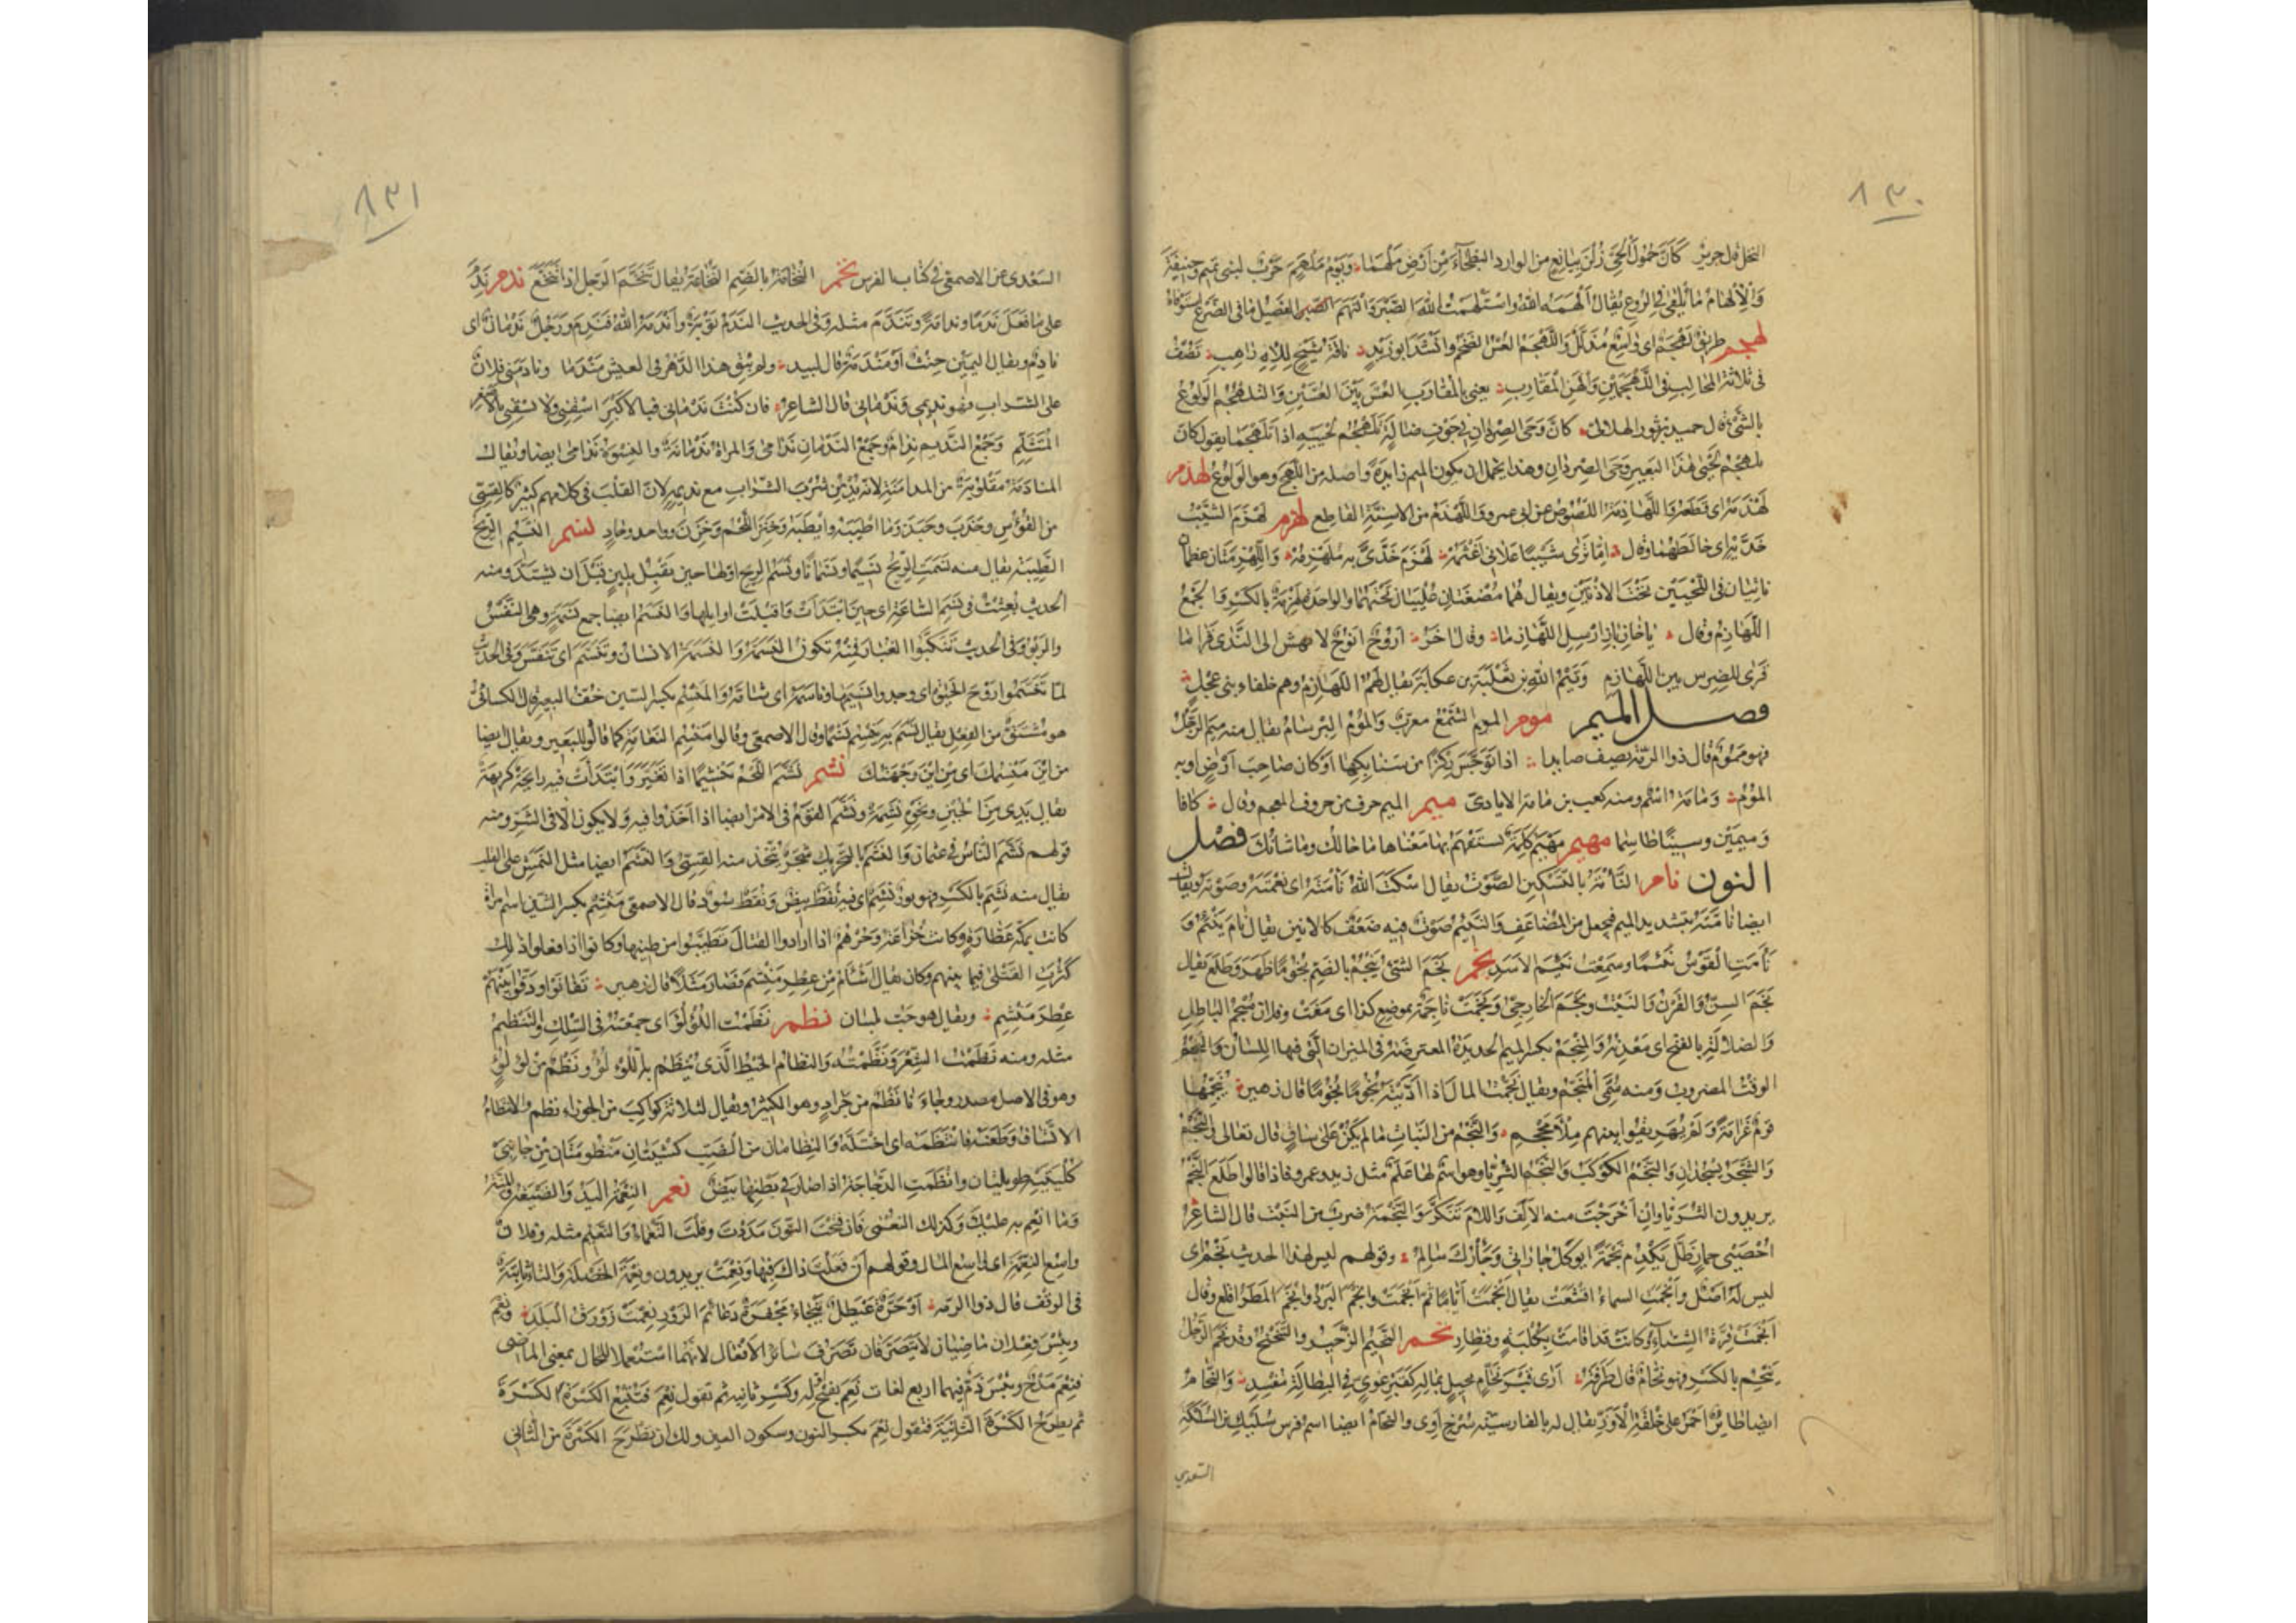 ٨٣٠
النخل قال جرير كَأَنَّ حُمُولَ الحَيِّ زُلْنَ بِيَانِعٍ من الوارد البَطْحَاءَ مِن أَرْضِ مَلْهَمَا وَيَوْمُ مَلْهَمٍ حَرْبٌ لبنى تميم وحنيفة
وَالْإِلْهَامُ مَا يُلْقَى فِي الرُّوعِ يُقَالُ أَلْهَمَهُ اللهُ واسْتَلْهَمْتُ اللهَ الصَّبْرَ وَالْتَهَمَ الفَصِيلُ مَا فى الضَّرْعِ استوفاه
لهجم طَرِيقٌ لَهْجَمٌ اى وَاسِعٌ مُذَلَّلٌ وَاللَّهْجَمُ العُسُّ الضَّخْمُ وانْشَدَ ابو زَيْدٍ نَاقَةُ شَيْخٍ لِلْإِلٰهِ رَاهِبِ تَصُفُّ
فى ثلاثة المحالب فى اللَّهْجَمَيْنِ وَالْهَنِ المُقَارِبِ يعنى بالمُقَارِبِ العُسَّ بَيْنَ العُسَّيْنِ وَالتَّلَهْجُمُ الوَلُوعُ
بالشَّىْءِ قال حميد بن ثور الهلالى كَأَنَّ وَحَى الصِّرْدَانِ فى جَوْفِ ضَالَةٍ تَلَهْجُمُ لَحْيَيْهِ اذا مَا تَلَهْجَمَا يقول كَأَنَّ
تلهجُم لَحْيَىْ هٰذَا البَعِيرِ وَحَى الصِّرْدَانِ وهذا يحتمل ان يكون الميم زايدة واصله من اللَّهَجِ وهو الوَلُوعُ لهذم
لَهْذَمَهُ اى قَطَعَهُ وَاللَّهَاذِمَةُ اللُّصُوصُ عن ابى عمرو وَاللَّهْذَمُ مِن الاسِنَّةِ القاطِع لهزم لَهْزَمَ الشَّيْبُ
خَدَّيْهِ اى خالَطَهُمَا وقال إمَّا تَرَى شَيْبًا عَلَانِى أَغْثَمُهْ لَهْزَمَ خَدَّىَّ بِهِ مُلَهْزِمُهْ وَاللِّهْزِمَتَانِ عظمان
ناتيان فى اللَّحْيَيْنِ تَحْتَ الاذُنَيْنِ ويقال هُمَا مُضْغَتَانِ عُلَيَّتَانِ تَحْتَهُمَا والواحدة لِهْزِمَةٌ بِالكَسْرِ وَالجَمْعُ
اللَّهَازِمُ وقال يَا خَازِبَازِ ارْسِلِ اللَّهَازِمَا وقال آخَرُ أَزُوحٌ أَنُوحٌ لا يهش الى النَّدَى قَرَا مَا
قَرَى للضِرسِ بين اللَّهَازِمِ وَتَيْمُ اللهِ بن ثَعْلَبَةَ بن عكابة يقال لهم اللَّهَازِمُ وهم حلفاء بنى عِجْلٍ
فصل الميم موم المومُ الشَّمْعُ معرب وَالمُومُ البِرْسَامُ يقال منه مِيمَ الرَّجُلُ
فهو مَمُومٌ قال ذو الرمة يصف صايدا اذا تَوَجَّسَ رِكْزًا مِن سَنَابِكِهَا أَوْ كانَ صَاحِبَ أَرْضٍ او به
المُومُ وَمَامَةُ اسْمٌ ومنه كعب بن مَامَة الايادىّ ميم الميم حرف من حروف المعجم وقال كافًا
وَمِيمَيْنِ وسِينًا طاسِمَا مهيم مَهْيَمْ كَلِمَةٌ يُسْتَفْهَمُ بِهَا مَعْنَاهَا مَا حَالُكَ وَمَا شَأْنُكَ فصل
النون نام النَّأْمَةُ بالتَّسْكِينِ الصَّوْتُ يقال اسْكَتَ اللهُ نَأْمَتَهُ اى نَغْمَتَهُ وصَوْتَهُ ويقال
ايضا نَامَّتَهُ بتشديد الميم فيجعل من المُضَاعَفِ وَالنَّئِيمُ صَوْتٌ فِيهِ ضَعْفٌ كالانين يقال نَأَمَ يَنْئِمُ وَ
نَأَمَتِ القَوْسُ نَئِيمًا وسمعت نَئِيمَ الاسَدِ نجم نَجَمَ الشَّىْءُ يَنْجُمُ بالضم نُجُومًا ظَهَرَ وَطَلَعَ يقال
نَجَمَ السِنُّ وَالقَرْنُ وَالنَبْتُ ونَجَمَ الخارِجِىُّ وَنَجَمَتْ نَاجِمَةٌ بموضع كذا اى نَبَغَتْ وفلان مَنْجَمُ البَاطِلِ
وَالضَّلَالَةِ بالفتح اى مَعْدِنُهُ وَالمِنْجَمُ بكسر الميم الحديدَةُ المعترضَةُ فى الميزان الَّتِى فيها اللِّسَانُ وَالنَّجْمُ
الوقتُ المضروبُ وَمنه سُمِّىَ المُنَجِّمُ ويقال نَجَّمْتُ المالَ اذا أَدَّيْتَهُ نُجُومًا قال زهير يُنَجِّمُهَا
قَوْمٌ لِقَوْمٍ غَرَامَةً وَلَمْ يُهَرِيقُوا بينهم مِلْأَ مِحْجَمِ وَالنَّجْمُ من النَّبَاتِ مَا لَمْ يَكُنْ عَلَى سَاقٍ قال تعالى وَالنَّجْمُ
وَالشَّجَرُ يَسْجُدَانِ وَالنَّجْمُ الكَوْكَبُ وَالنَّجْمُ الثُرَيَّا وهو اسْمٌ لها عَلَمٌ مثل زيد وعمرو فاذا قالوا طَلَعَ النَّجْمُ
يريدون الثُّرَيَّا وان أَخْرَجْتَ منه الألِفَ وَاللامَ تَنَكَّرَ وَالنَّجْمَةُ ضربٌ من النَبْتِ قال الشاعِرُ
أَخُصْيَىْ حِمَارٍ ظَلَّ يَكْدِمُ نَجْمَةً أَيُوكَلُ جَارَاتِى وَجَارُكَ سَالِمُ وقولهم ليس لهذا الحديث نَجْمٌ اى
ليس لَهُ اصْلٌ وأَنْجَمَتِ السماءُ اقْشَعَتْ يقال أَثْجَمَتْ أَيَّامًا ثُمَّ أَنْجَمَتْ وأَنْجَمَ البَرْدُ وأَنْجَمَ المَطَرُ اقلع وقال
أَنْجَمَتْ قِرَّةُ الشِّتَاءِ وكَانَتْ قد اقَامَتْ بِكُلْبَةٍ وقِطَارِ نحم النَّحِيمُ الزَّحِيرُ والتَّنَحْنُحُ وقد نَحَمَ الرَّجُلُ
يَنْحِمُ بالكَسْرِ فهو نَحَّامٌ قال طَرَفَةُ أَرَى قَبْرَ نَحَّامٍ بخيلٍ بِمَالِهِ كَقَبْرِ غَوِىٍّ فِى البِطَالَةِ مُفْسِدِ وَالنُّحَامُ
ايضا طَائِرٌ أَحْمَرُ على خِلْقَةِ الْأوَزِّ يقال له بالفارسيّة سُرْخ آوى والنحّامُ ايضا اسم فرس سُلَيْك بن السُّلَكَة
السّعدي
٨٣١
السَعْدِى عن الاصمعى فى كتاب الفرس نخم النُّخَامَةُ بالضم النُّخَاعَةُ يقال تَنَخَّمَ الرَّجل اذا تَنَخَّعَ ندم نَدِمَ
عَلَى مَا فَعَلَ نَدَمًا وندامَةً وتَنَدَّمَ مثله وفى الحديث النَدَمُ تَوْبَةٌ وأَنْدَمَهُ اللهُ فَنَدِمَ وَرَجُلٌ نَدْمَانٌ اى
نَادِمٌ ويقال اليَمِينُ حِنْثٌ أَوْ مَنْدَمَةٌ قال لبيد ولم يُبْقِ هذا الدَّهْرُ فى العيشِ مَنْدَمَا ونادَمَنِى فلانٌ
على الشراب فهو نديمى وَنَدْمَانِى قال الشاعر فان كُنْتَ نَدْمَانِى فَبِالأَكْبَرِ اسْقِنِى وَلَا تَسْقِنِى بالأصْغَر
المُتَثَلِّمِ وَجَمْعُ النَّدِيمِ نِدَامٌ وَجَمْعُ النَدْمَانِ نَدَامَى وَالمراة نَدْمَانَةٌ والنِسْوَةُ نَدَامَى ايضا ويقال
المُنَادَمَةُ مَقْلُوبَةٌ من المدامَنَةِ لانه يُدْمِنُ شُرْبَ الشَّرَابِ مع نديمه لانّ القَلْبَ فى كلامهم كثِيرٌ كَالقِسِىِّ
من القَوْسِ وجَذَبَ وجَبَذَ وَمَا اطْيَبَهُ وايْطَبَهُ وَخَنِزَ اللَّحْمُ وَخَزِنَ وواحد وحادٍ نسم النَسِيمُ الرِّيحُ
الطَّيِّبَةُ يقال منه نَسَمَتِ الرِّيحُ نَسِيمًا ونَسَمَانًا ونَسَمُ الريحِ اوّلها حين تُقْبِلُ بلينٍ قَبْلَ ان تشتدّ ومنه
الحديث بُعِثْتُ فى نَسَمِ السَّاعَةِ اى حِينَ ابْتَدَأَتْ وَاقْبَلَتْ اوايلها وَالنَسَمُ ايضا جمع نَسَمَةٍ وهى النَفَسُ
والرَبْوُ وَفى الحديث تَنَكَّبُوا الغُبَارَ فَمِنْهُ تكون النَسَمَةُ وَالنَسَمَةُ الانسان وتَنَسَّمَ اى تَنَفَّسَ وَفى الحديث
لمّا تَنَسَّمُوا رَوْحَ الحَيَاةِ اى وجدوا نَسِيمَهَا ونَاسَمَهُ اى شَامَّهُ وَالمَنْسِمُ بكسر السّين خُفُّ البعير قال الكسائىّ
هو مُشْتَقٌّ من الفِعْلِ يقال نَسَمَ بِهِ يَنْسِمُ نَسْمًا وقال الاصمعى وقالوا مَنْسِمُ النَعَامَةِ كما قالوا للبَعِيرِ ويقال ايضا
من ايْنَ مَنْسِمُكَ اى مِنْ ايْنَ وِجْهَتُكَ نشم نَشَّمَ اللَّحْمُ تَنْشِيمًا اذا تَغَيَّرَ وَابْتَدَأَتْ فيه رايحَةٌ كَرِيهَةٌ
يقال يَدِى مِنَ الجُبْنِ ونحوه نَشِمَةٌ ونَشَّمَ القَوْمُ فى الامر ايضا اذا أَخَذُوا فيه وَلا يكون الّا فى الشَرِّ ومنه
قولهم نَشَّمَ النَّاسُ فى عثمان وَالنَشَمُ بالتحريك شَجَرٌ يُتَّخَذُ منه القِسِىُّ وَالنَشَمُ ايضا مثل النَمَشِ على القلب
يقال منه نَشِمَ بالكَسْرِ فهو ثَوْرٌ نَشِمٌ اى فِيهِ نُقَطٌ بِيضٌ وَنُقَطٌ سُودٌ قال الاصمعى مَنْشِمُ بكسر الشين اسم امراة
كانت بمكّة عَطَّارَةً وكانت خُزَاعَةُ وَجُرْهُمٌ اذا ارادوا القتالَ تَطَيَّبُوا من طِيبِها وكانوا اذا فعلوا ذلك
كَثُرَتِ القَتْلَى فيما بينهم وكان يقال أَشْأَمُ مِنْ عِطْرِ مَنْشِمَ فصار مَثَلًا قال زهير تَفَانَوْا وَدَقُّوا بَيْنَهُمْ
عِطْرَ مَنْشِمِ ويقال هو حَبُّ بَلَسَان نظم نَظَمْتُ اللُؤْلُؤَ اى جمعته فى السِّلْكِ والتَّنْظِيمُ
مثله ومنه نَظَمْتُ الشِّعْرَ وَنَظَّمْتُهُ وَالنظامُ الخَيْطُ الَّذِى يُنْظَمُ به اللُّؤْلُؤُ ونَظْمٌ مِنْ لُؤْلُؤٍ
وهو فى الاصل مصدر وجَاءَنَا نَظْمٌ من جَرَادٍ وهو الكثير ويقال لثلاثة كَوَاكِبَ من الجَوْزَاءِ نظم والانتظامُ
الاتّساق وطَعَنَهُ فانْتَظَمَهُ اى اخْتَلَّهُ وَالنِظَامَانِ من الضَبِّ كُشْيَتَانِ مَنْظُومَتَانِ مِنْ جَانِبَىْ
كُلْيَتَيْهِ طويلتان وانْظَمَتِ الدَّجَاجَةُ اذا صَارَ فى بَطْنِهَا بَيْضٌ نعم النِّعْمَةُ اليَدُ وَالصَّنِيعَةُ والمِنَّةُ
وَمَا أُنْعِمَ بِهِ عليك وكذلك النُعْمَى فان فَتَحْتَ النّونَ مَدَدْتَ وقُلْتَ النَّعْمَاءُ وَالنَّعِيمُ مثله وفلان
واسِعُ النِعْمَةِ اى وَاسِعُ المالِ وقولهم اِنْ فَعَلْتَ ذَاكَ فَبِهَا وَنِعْمَتْ يريدون ونِعْمَتِ الخَصْلَةُ والتاء ثابِتَةٌ
فى الوقف قال ذو الرمّة أَوْ حُرَّةٌ عَيْطَلٌ ثَبْجَاءُ مُجْفَرَةٌ دَعَائِمَ الزَوْرِ نِعْمَتْ زَوْرَقُ البَلَدِ وَنِعْمَ
وبِئْسَ فِعْلَانِ مَاضِيَانِ لَا يَتَصَرَّفَانِ تَصَرُّفَ سَائِرِ الْأَفْعَالِ لانّهما اسْتُعْمِلَا للحَالِ بمعنى الماضى
فنِعْمَ مَدْحٌ وبِئْسَ ذَمٌّ وفيهما اربع لغات نَعِمَ بفَتْحِ اوّله وكَسْرِ ثانيه ثم تقول نِعِمَ فَتُتْبِعُ الكَسْرَةَ الكَسْرَةَ
ثم تطرح الكَسْرَةَ الثَّانِيَةَ فتقول نِعْمَ بكسر النون وسكون العين ولك ان تَطْرَحَ الكَسْرَةَ من الثّانى